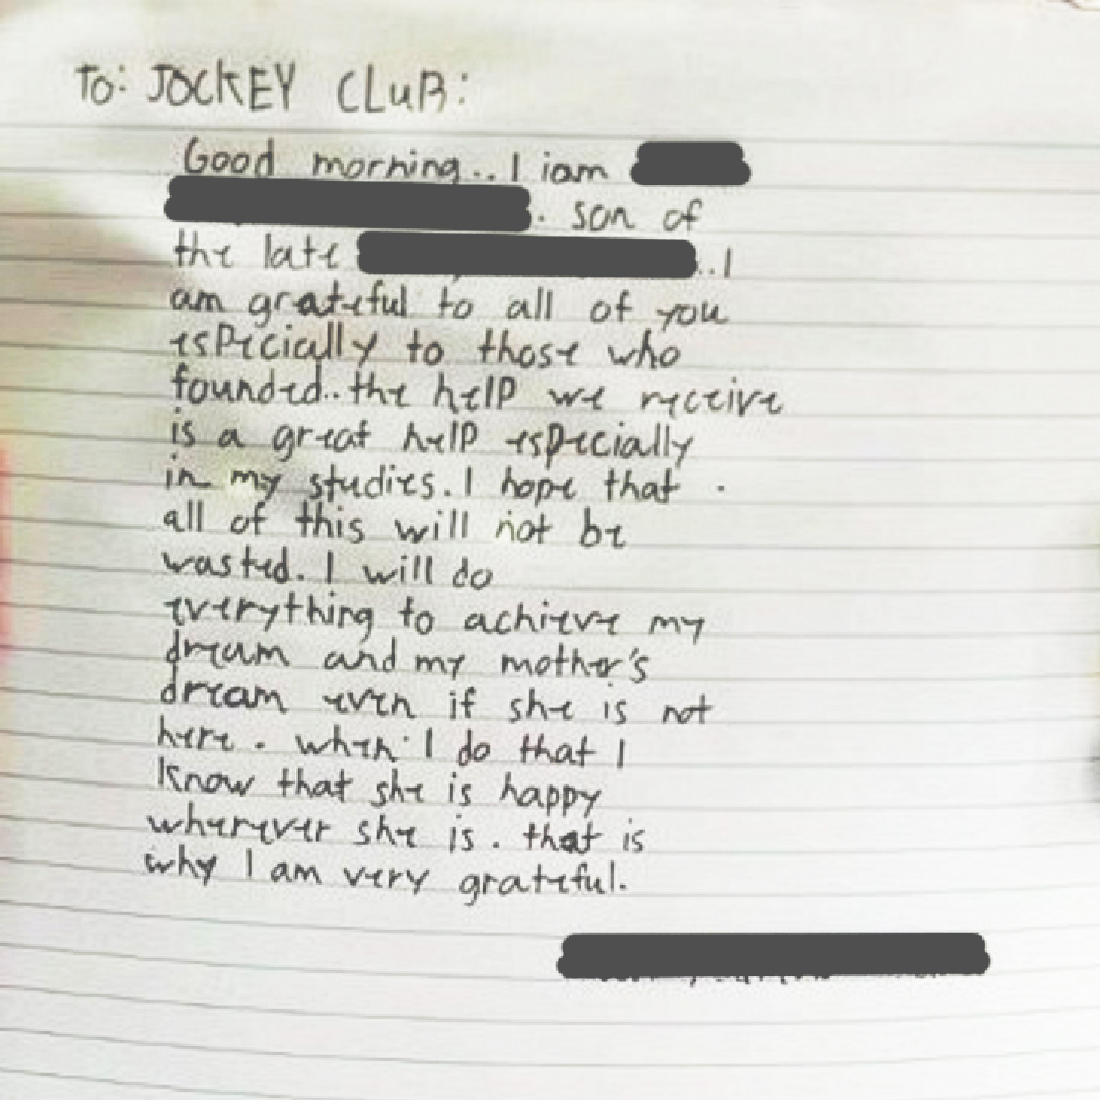 To: JOCKEY CLUB:
Good morning.. I iam
. son of
the late ..I
am grateful to all of you
especially to those who
founded.. the help we receive
is a great help especially
in my studies. I hope that .
all of this will not be
wasted. I will do
everything to achieve my
dream and my mother's
dream even if she is not
here. when I do that I
know that she is happy
wherever she is. that is
why I am very grateful.